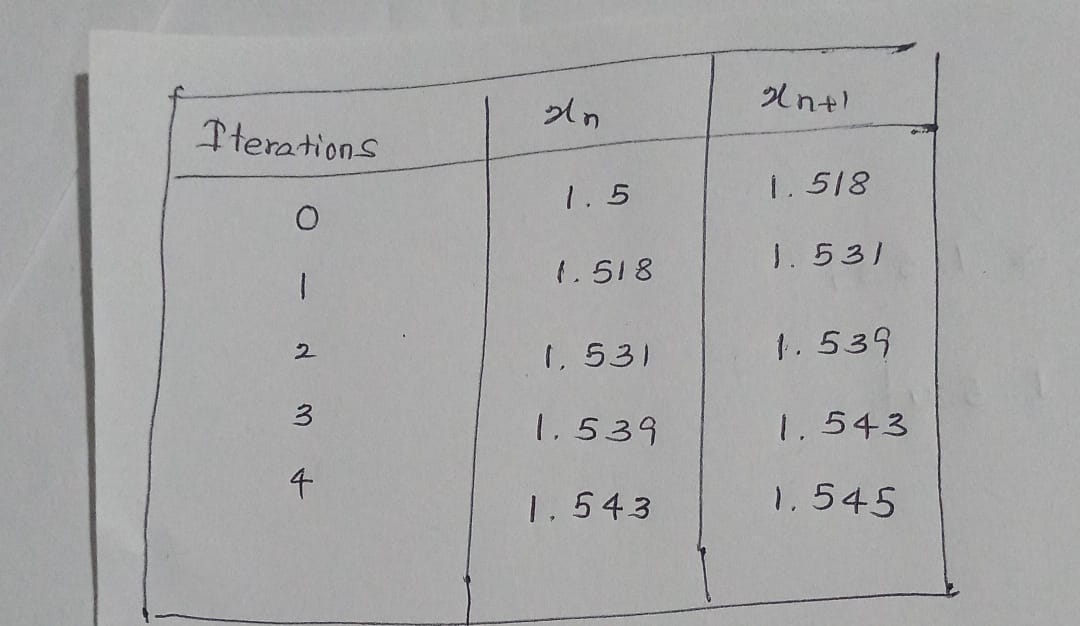 Iterations xn xn+1
0 1.5 1.518
1 1.518 1.531
2 1.531 1.539
3 1.539 1.543
4 1.543 1.545